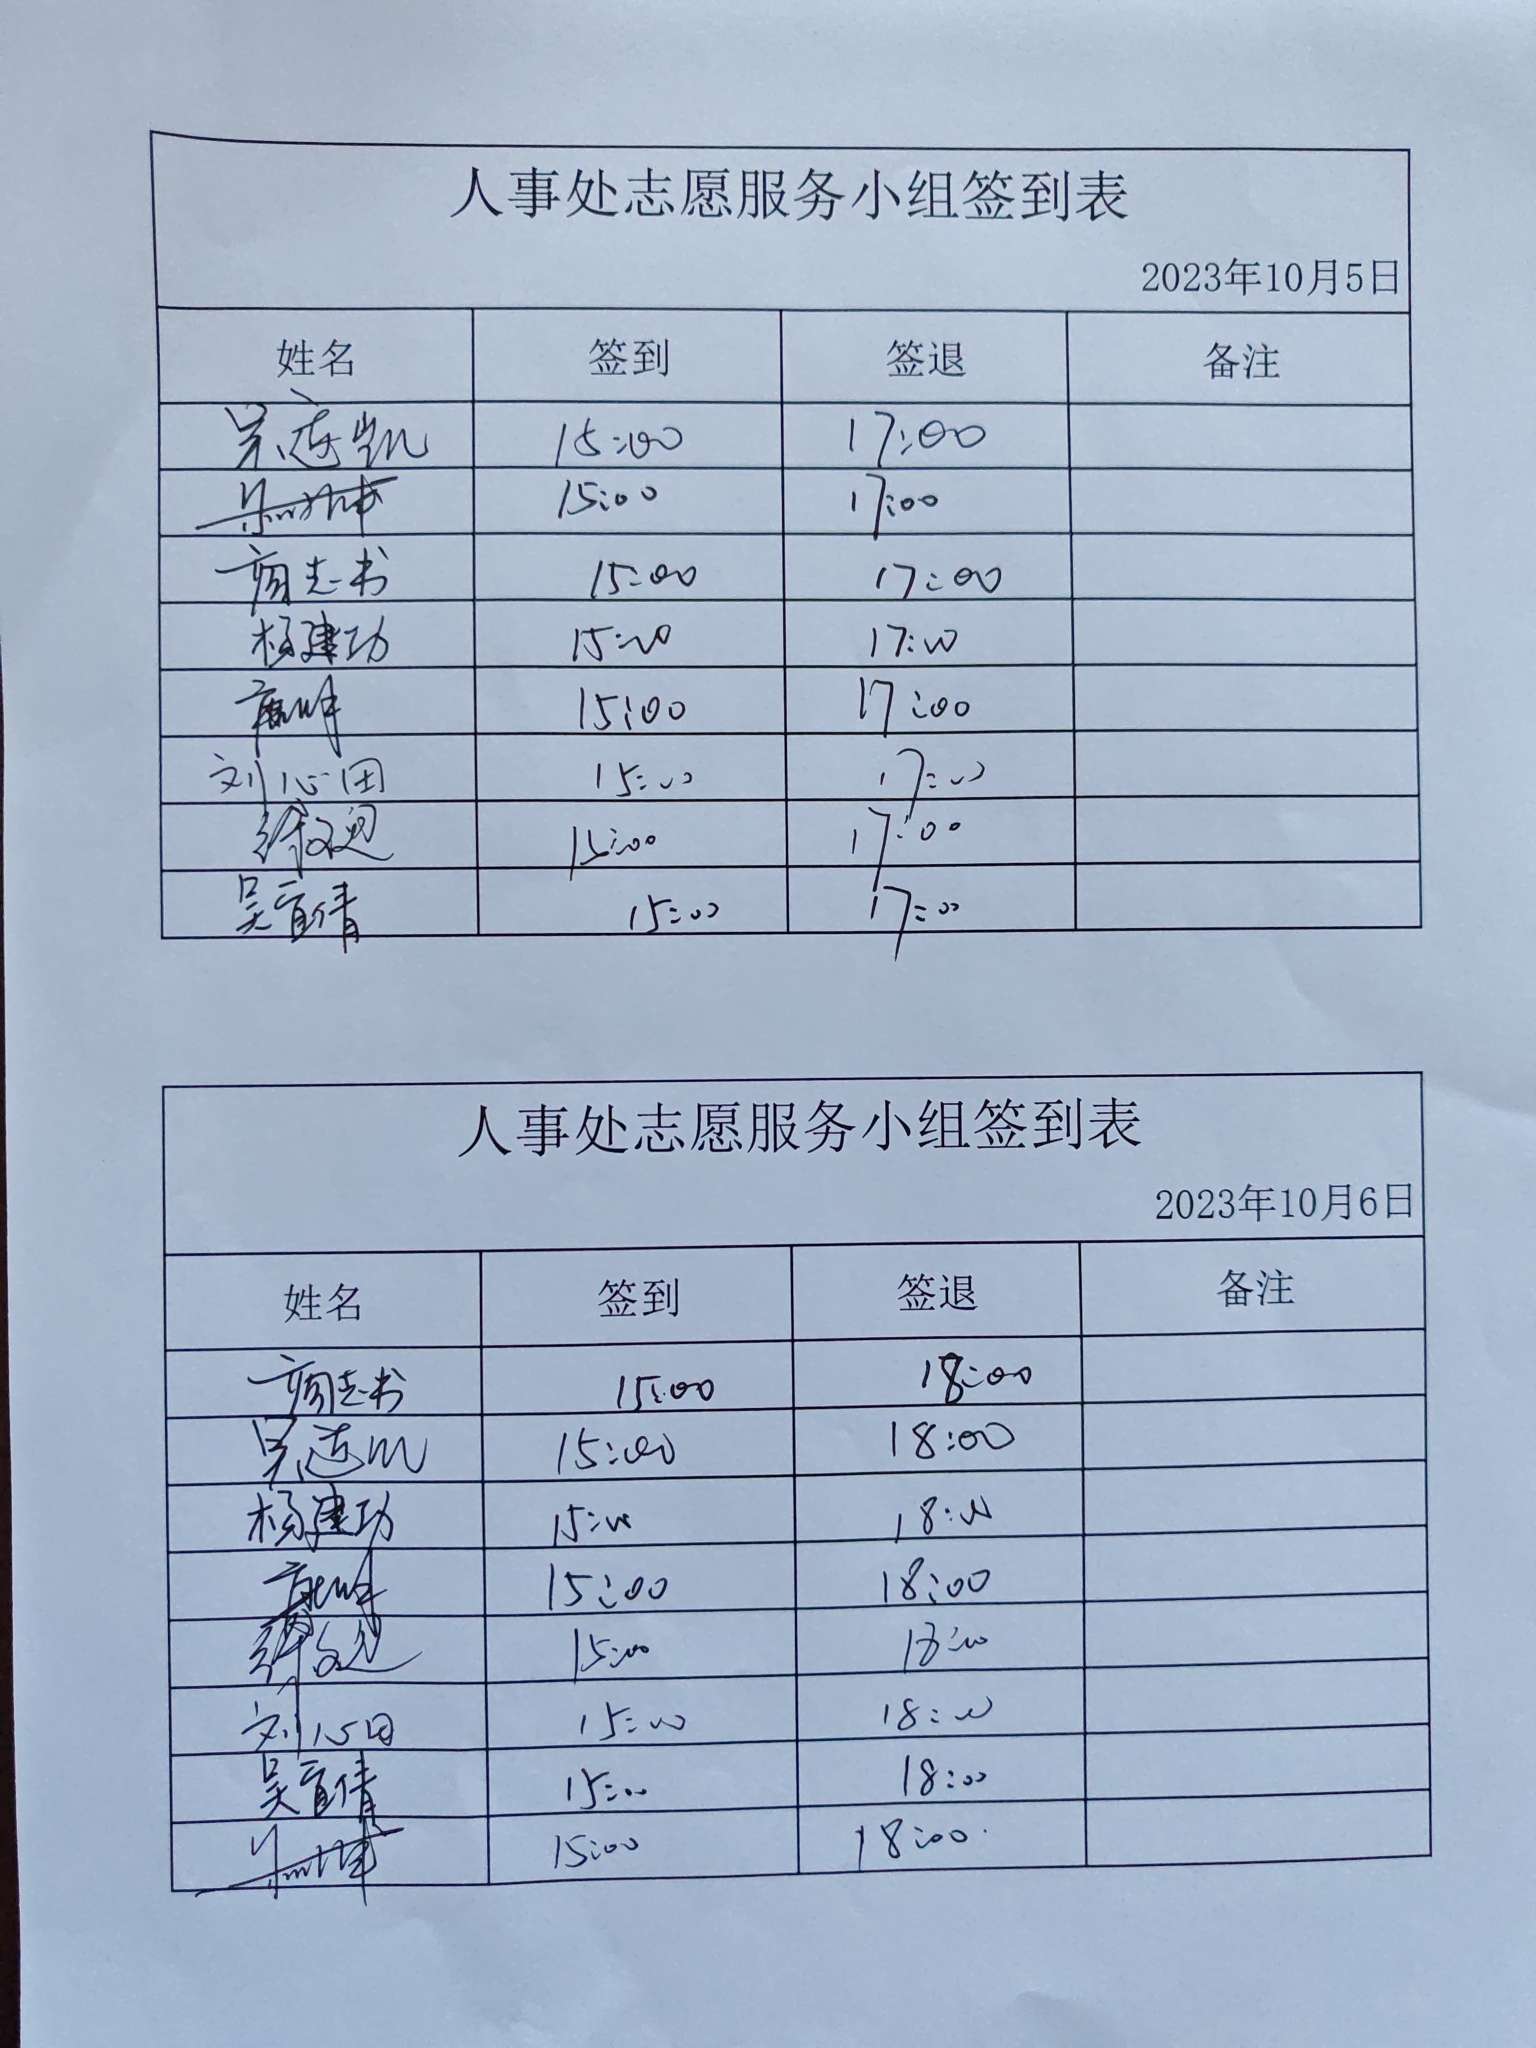 人事处志愿服务小组签到表
2023年10月5日
姓名 签到 签退 备注
吴连凯 15:00 17:00
15:00 17:00
商志书 15:00 17:00
杨建功 15:00 17:00
15:00 17:00
刘心田 15:00 17:00
15:00 17:00
吴宜倩 15:00 17:00
人事处志愿服务小组签到表
2023年10月6日
姓名 签到 签退 备注
商志书 15:00 18:00
吴连凯 15:00 18:00
杨建功 15:00 18:00
15:00 18:00
15:00 18:00
刘心田 15:00 18:00
吴宜倩 15:00 18:00
15:00 18:00